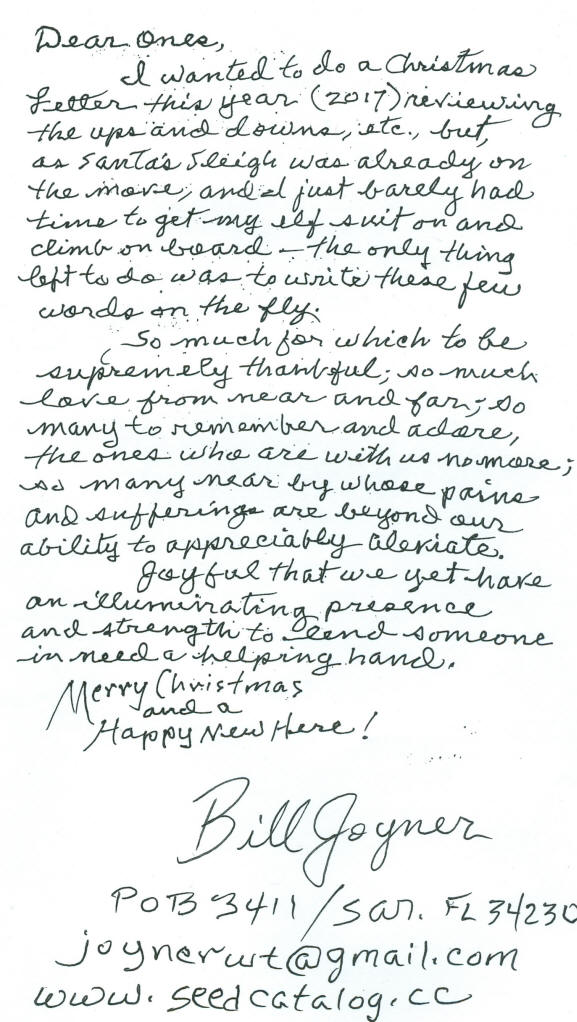 Dear Ones,
I wanted to do a Christmas
Letter this year (2017) reviewing
the ups and downs, etc., but,
as Santa's Sleigh was already on
the move, and I just barely had
time to get my elf suit on and
climb on board - the only thing
left to do was to write these few
words on the fly.
So much for which to be
supremely thankful; so much
love from near and far; so
many to remember and adore,
the ones who are with us no more;
so many near by whose pains
and sufferings are beyond our
ability to appreciably aleviate.
Joyful that we yet have
an illuminating presence
and strength to lend someone
in need a helping hand.
Merry Christmas
and a
Happy New Here!
Bill Joyner
POB 3411 / Sar. FL 34230
joynerwt@gmail.com
www.seedcatalog.cc